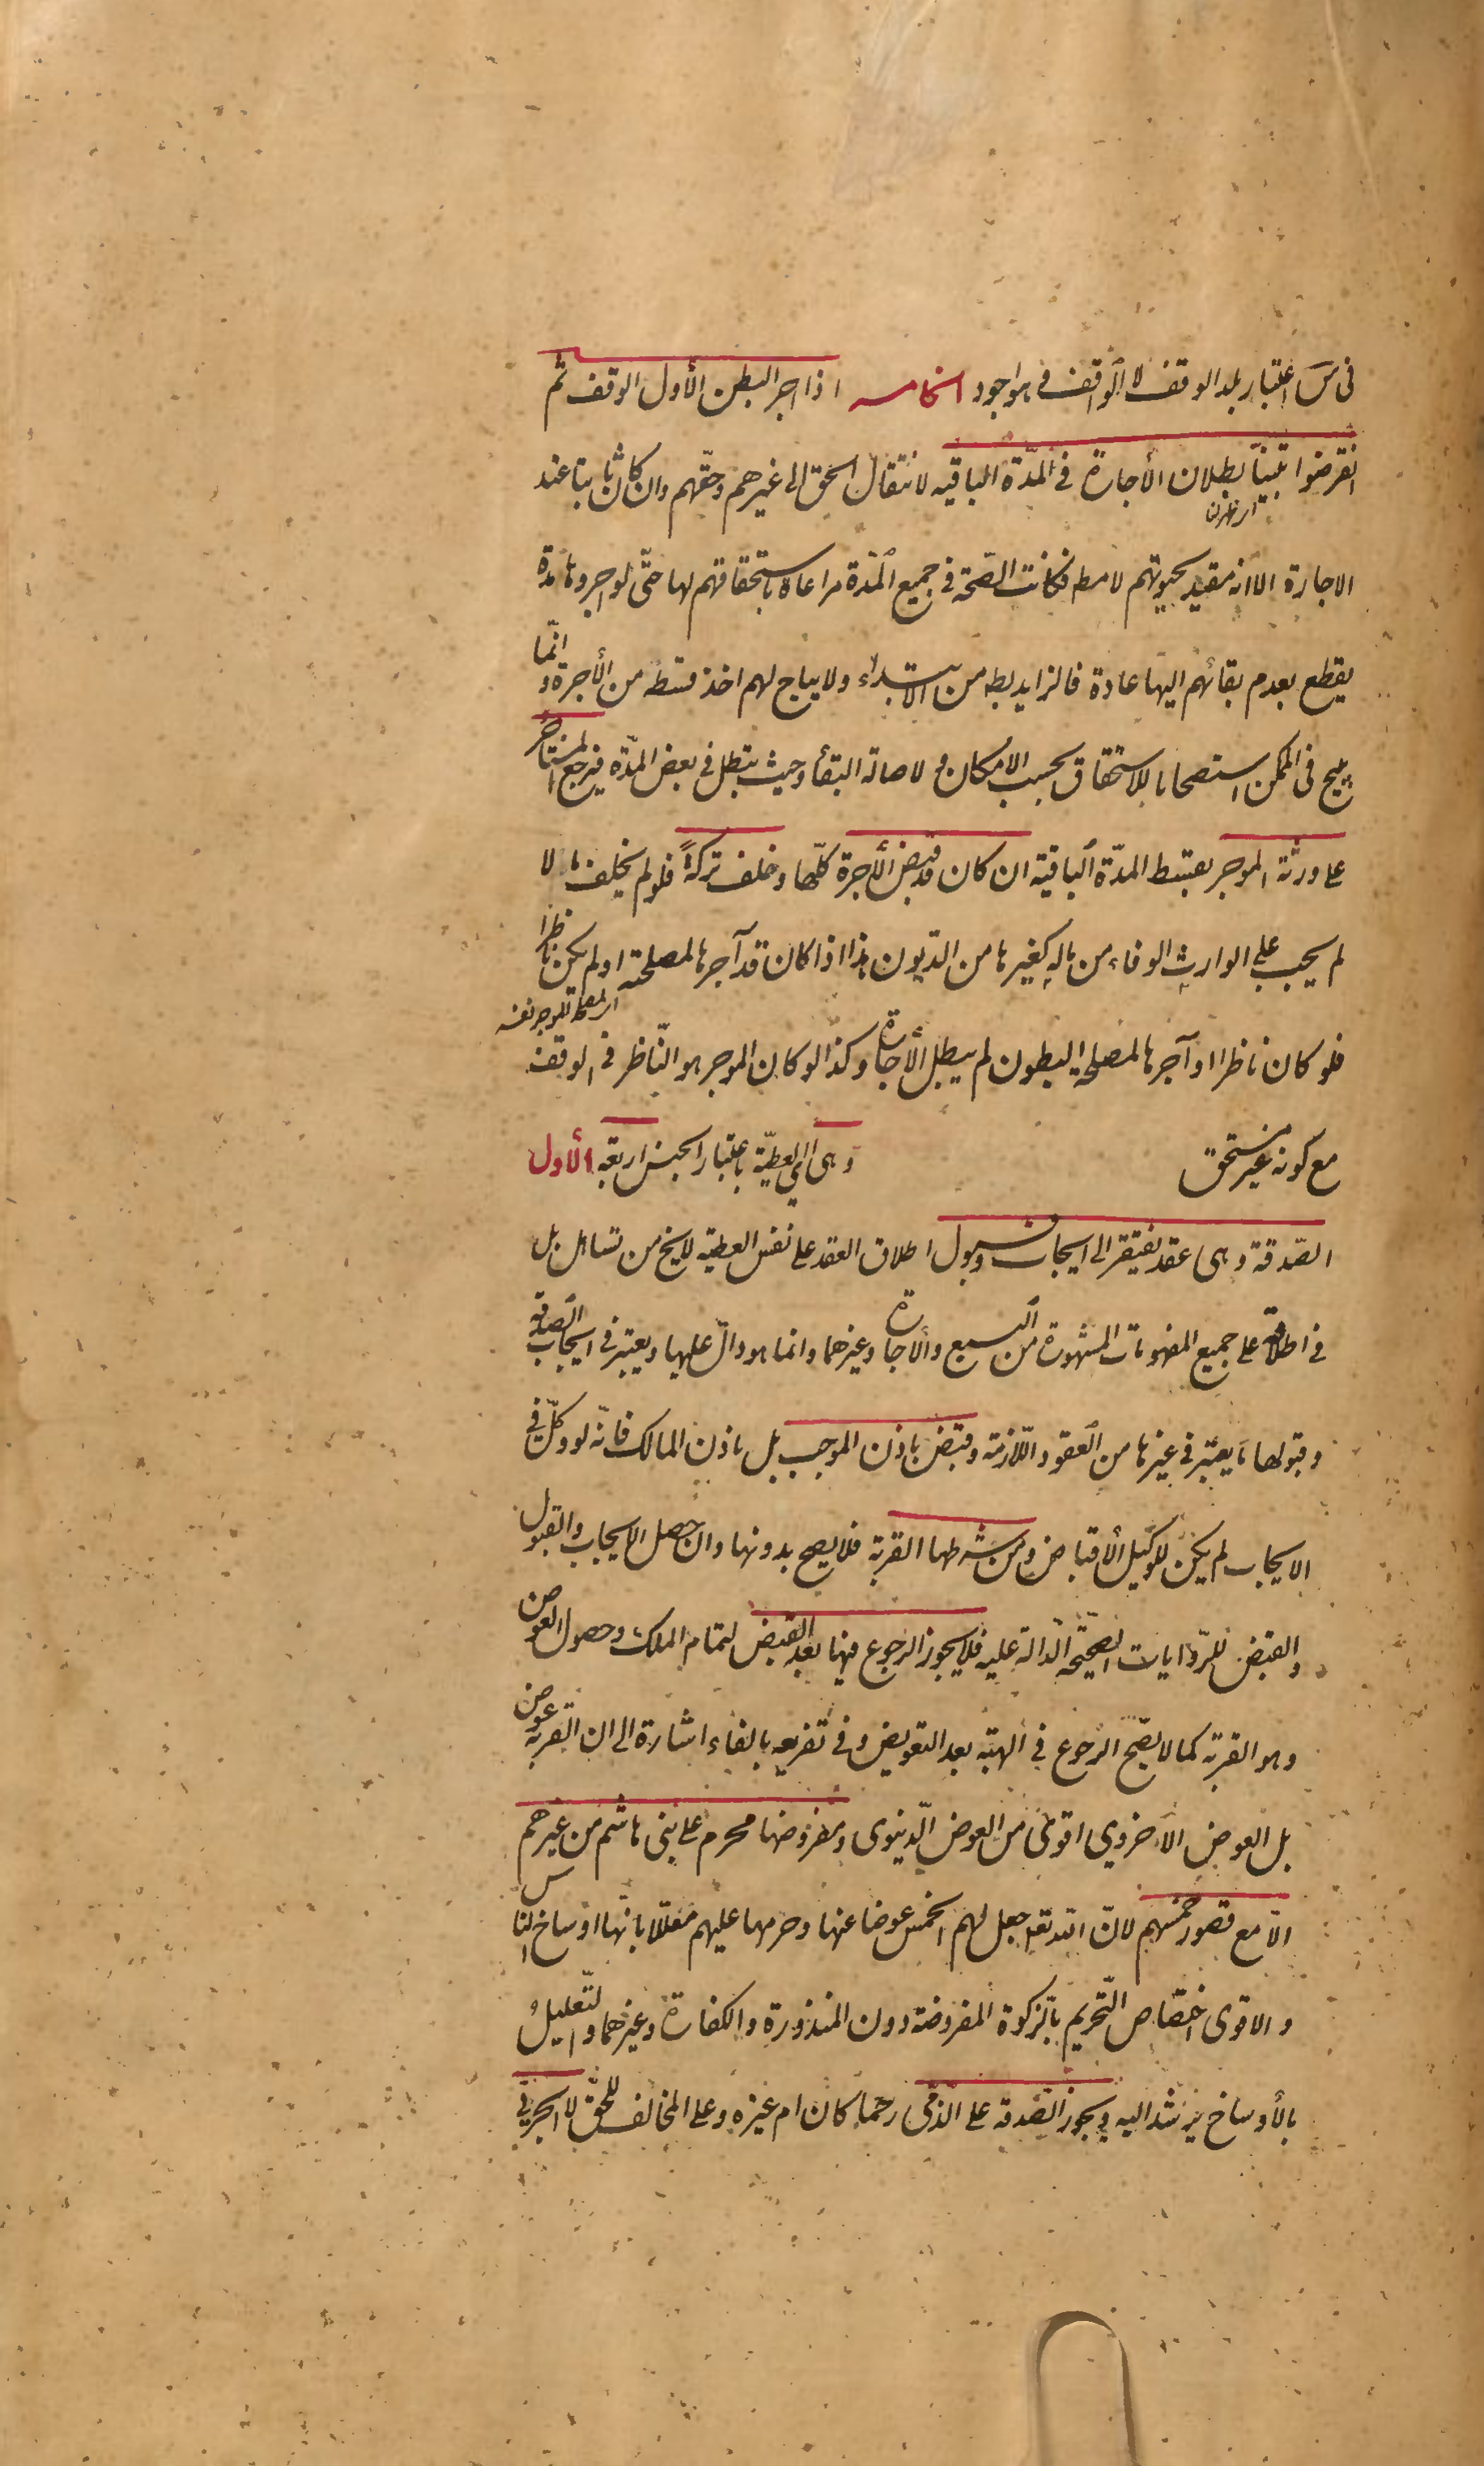 في س اعتبار بلد الوقف لا الواقف في هو اجود الخامسه اذا اجر البطن الأول الوقف ثم
انقرضوا تبين بطلان الأجارة في المدة الباقيه لانتقال الحق الى غيرهم وحقهم وان كان ثابتا عند
الاجارة الا انه مقيد بحيوتهم لا مط فكانت الصحة في جميع المدة مراعاة باستحقاقهم لها حتى لو اجروها مدة
يقطع بعدم بقائهم اليها عادة فالزايد بط من الابتداء ولا يباح لهم اخذ قسطه من الأجرة وانما
يبيح في الممكن استصحابا للاستحقاق بحسب الأمكان ولاصالة البقاء وحيث تبطل في بعض المدة فيرجع المستاجر
على ورثة الموجر بقسط المدة الباقية ان كان قد قبض الأجرة كلها وخلف تركة فلو لم يخلف مالا
لم يجب على الوارث الوفاء من ماله كغيرها من الديون هذا اذا كان قد آجرها لمصلحته او لم يكن ناظرا
فلو كان ناظرا او آجرها لمصلحة البطون لم يبطل الأجارة وكذا لو كان الموجر هو الناظر في الوقف
مع كونه غير مستحق وهى اى العطية باعتبار الجنس اربعة الأول
الصدقة وهى عقد يفتقر الى ايجاب وقبول اطلاق العقد على نفس العطية لا يخ من تساهل بل
في اطلاقه على جميع المفهومات المشهورة من البيع والاجارة وغيرهما وانما هو دال عليها ويعتبر في ايجاب الصدقة
وقبولها ما يعتبر في غيرها من العقود اللازمة وقبض باذن الموجب بل باذن المالك فانه لو وكل في
الايجاب لم يكن للوكيل الأقباض ومن شرطها القربة فلا يصح بدونها وان حصل الايجاب والقبول
والقبض للروايات الصحيحة الدالة عليه فلا يجوز الرجوع فيها بعد القبض لتمام الملك وحصول العوض
وهو القربة كما لا يصح الرجوع في الهبة بعد التعويض وفي تفريعه بالفاء اشارة الى ان القربة عوض
بل العوض الأخروي اقوى من العوض الدنيوى ومفروضها محرم على بنى هاشم من غيرهم
الا مع قصور خمسهم لان الله تع جعل لهم الخمس عوضا عنها وحرمها عليهم معللا بانها اوساخ الناس
والاقوى اختصاص التحريم بالزكوة المفروضة دون المنذورة والكفارة وغيرهما والتعليل
بالأوساخ يرشد اليه ويجوز الصدقة على الذمي رحما كان ام غيره وعلى المخالف للحق لا الحربي